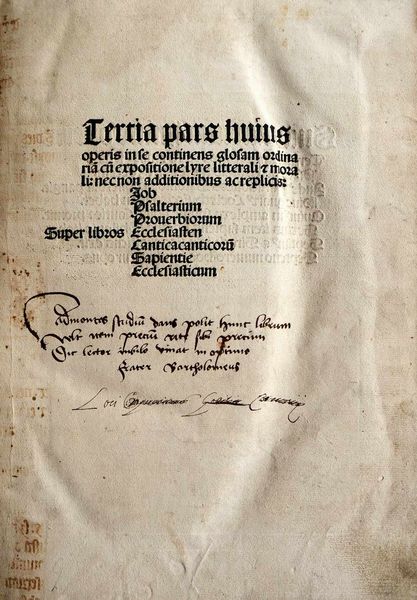 Tertia pars huius
operis in se continens glosam ordina
riã cũ expositione lyre litterali ⁊ mora
li: necnon additionibus ac replicis:
Job
Psalterium
Prouerbiorum
Super libros Ecclesiasten
Cantica canticorũ
Sapientie
Ecclesiasticum
studiũ dans polit hunc librum
precium
Sic lector in optimo
frater Bartholomeus
Loci